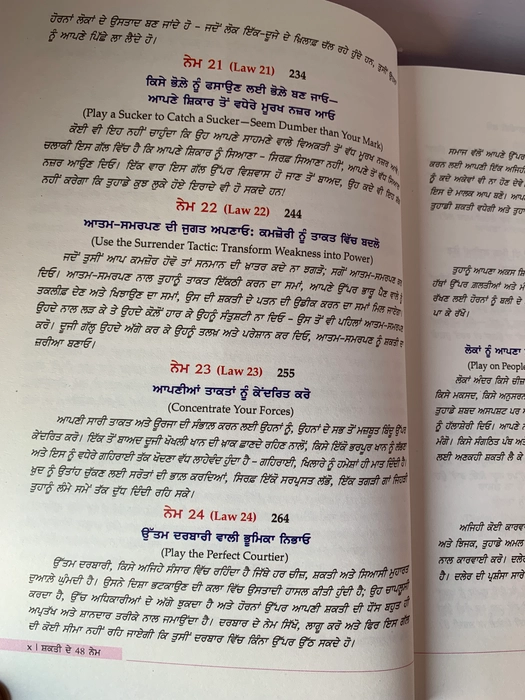 ਹੋਰਨਾਂ ਲੋਕਾਂ ਦੇ ਉਸਤਾਦ ਬਣ ਜਾਂਦੇ ਹੋ – ਜਦੋਂ ਲੋਕ ਇੱਕ-ਦੂਜੇ ਦੇ ਖ਼ਿਲਾਫ਼ ਚੱਲ ਰਹੇ ਹੁੰਦੇ ਹਨ, ਤੁਸੀਂ ਉਹਨਾਂ
ਨੂੰ ਆਪਣੇ ਪਿੱਛੇ ਲਾ ਲੈਂਦੇ ਹੋ।
ਨੇਮ 21 (Law 21) 234
ਕਿਸੇ ਭੋਲੇ ਨੂੰ ਫਸਾਉਣ ਲਈ ਭੋਲੇ ਬਣ ਜਾਓ—
ਆਪਣੇ ਸ਼ਿਕਾਰ ਤੋਂ ਵਧੇਰੇ ਮੂਰਖ ਨਜ਼ਰ ਆਓ
(Play a Sucker to Catch a Sucker—Seem Dumber than Your Mark)
ਕੋਈ ਵੀ ਇਹ ਨਹੀਂ ਚਾਹੁੰਦਾ ਕਿ ਉਹ ਆਪਣੇ ਸਾਹਮਣੇ ਵਾਲੇ ਵਿਅਕਤੀ ਤੋਂ ਵੱਧ ਮੂਰਖ ਨਜ਼ਰ ਆਵੇ,
ਚਲਾਕੀ ਇਸ ਗੱਲ ਵਿੱਚ ਹੈ ਕਿ ਆਪਣੇ ਸ਼ਿਕਾਰ ਨੂੰ ਸਿਆਣਾ – ਸਿਰਫ਼ ਸਿਆਣਾ ਨਹੀਂ, ਆਪਣੇ ਤੋਂ ਵੱਧ ਸਿਆਣਾ
ਨਜ਼ਰ ਆਉਣ ਦਿਓ। ਇੱਕ ਵਾਰ ਇਸ ਗੱਲ ਉੱਪਰ ਵਿਸ਼ਵਾਸ ਹੋ ਜਾਣ ਤੋਂ ਬਾਅਦ, ਉਹ ਕਦੇ ਵੀ ਇਹ
ਨਹੀਂ ਕਰੇਗਾ ਕਿ ਤੁਹਾਡੇ ਕੁਝ ਲੁਕੇ ਹੋਏ ਇਰਾਦੇ ਵੀ ਹੋ ਸਕਦੇ ਹਨ!
ਨੇਮ 22 (Law 22) 244
ਆਤਮ-ਸਮਰਪਣ ਦੀ ਜੁਗਤ ਅਪਣਾਓ: ਕਮਜ਼ੋਰੀ ਨੂੰ ਤਾਕਤ ਵਿੱਚ ਬਦਲੋ
(Use the Surrender Tactic: Transform Weakness into Power)
ਜਦੋਂ ਤੁਸੀਂ ਆਪ ਕਮਜ਼ੋਰ ਹੋਵੋ ਤਾਂ ਸਨਮਾਨ ਦੀ ਖ਼ਾਤਰ ਕਦੇ ਨਾ ਝਗੜੋ; ਸਗੋਂ ਆਤਮ-ਸਮਰਪਣ ਕਰ
ਦਿਓ। ਆਤਮ-ਸਮਰਪਣ ਨਾਲ ਤੁਹਾਨੂੰ ਤਾਕਤ ਇਕੱਠੀ ਕਰਨ ਦਾ ਸਮਾਂ, ਆਪਣੇ ਉੱਪਰ ਭਾਰੂ ਪੈਣ ਵਾਲੇ ਨੂੰ
ਤਕਲੀਫ਼ ਦੇਣ ਅਤੇ ਖਿਝਾਉਣ ਦਾ ਸਮਾਂ, ਉਸ ਦੀ ਸ਼ਕਤੀ ਦੇ ਪਤਨ ਦੀ ਉਡੀਕ ਕਰਨ ਦਾ ਸਮਾਂ ਮਿਲ ਜਾਏਗਾ।
ਉਹਦੇ ਨਾਲ ਲੜ ਕੇ ਤੇ ਉਹਦੇ ਕੋਲੋਂ ਹਾਰ ਕੇ ਉਹਨੂੰ ਸੰਤੁਸ਼ਟੀ ਨਾ ਦਿਓ – ਉਸ ਤੋਂ ਵੀ ਪਹਿਲਾਂ ਆਤਮ-ਸਮਰਪਣ
ਕਰੋ। ਦੂਜੀ ਗੱਲ੍ਹ ਉਹਦੇ ਅੱਗੇ ਕਰ ਕੇ ਉਹਨੂੰ ਤਲਖ਼ ਅਤੇ ਪਰੇਸ਼ਾਨ ਕਰ ਦਿਓ, ਆਤਮ-ਸਮਰਪਣ ਨੂੰ ਸ਼ਕਤੀ ਦਾ
ਜ਼ਰੀਆ ਬਣਾਓ।
ਨੇਮ 23 (Law 23) 255
ਆਪਣੀਆਂ ਤਾਕਤਾਂ ਨੂੰ ਕੇਂਦਰਿਤ ਕਰੋ
(Concentrate Your Forces)
ਆਪਣੀ ਸਾਰੀ ਤਾਕਤ ਅਤੇ ਊਰਜਾ ਦੀ ਸੰਭਾਲ ਕਰਨ ਲਈ ਉਹਨਾਂ ਨੂੰ, ਉਹਨਾਂ ਦੇ ਸਭ ਤੋਂ ਮਜ਼ਬੂਤ ਬਿੰਦੂ ਉੱਪਰ
ਕੇਂਦਰਿਤ ਕਰੋ। ਇੱਕ ਤੋਂ ਬਾਅਦ ਦੂਜੀ ਖੋਖਲੀ ਖਾਨ ਦੀ ਖ਼ਾਕ ਛਾਣਦੇ ਰਹਿਣ ਨਾਲੋਂ, ਕਿਸੇ ਇੱਕੋ ਭਰਪੂਰ ਖਾਨ ਨੂੰ ਲੱਭਣਾ
ਅਤੇ ਇਸ ਨੂੰ ਵਧੇਰੇ ਗਹਿਰਾਈ ਤੱਕ ਖੋਦਣਾ ਵੱਧ ਲਾਹੇਵੰਦ ਹੁੰਦਾ ਹੈ – ਗਹਿਰਾਈ, ਖਿਲਾਰੇ ਨੂੰ ਹਮੇਸ਼ਾਂ ਹੀ ਮਾਤ ਦਿੰਦੀ ਹੈ।
ਖ਼ੁਦ ਨੂੰ ਉਤਾਂਹ ਚੁੱਕਣ ਲਈ ਸਰੋਤਾਂ ਦੀ ਭਾਲ ਕਰਦਿਆਂ, ਸਿਰਫ਼ ਇੱਕੋ ਸਰਪ੍ਰਸਤ ਲੱਭੋ, ਇੱਕ ਤਗੜੀ ਗਾਂ ਜਿਹੜੀ
ਤੁਹਾਨੂੰ ਲੰਮੇ ਸਮੇਂ ਤੱਕ ਦੁੱਧ ਦਿੰਦੀ ਰਹਿ ਸਕੇ।
ਨੇਮ 24 (Law 24) 264
ਉੱਤਮ ਦਰਬਾਰੀ ਵਾਲੀ ਭੂਮਿਕਾ ਨਿਭਾਓ
(Play the Perfect Courtier)
ਉੱਤਮ ਦਰਬਾਰੀ, ਕਿਸੇ ਅਜਿਹੇ ਸੰਸਾਰ ਵਿੱਚ ਰਹਿੰਦਾ ਹੈ ਜਿੱਥੇ ਹਰ ਚੀਜ਼, ਸ਼ਕਤੀ ਅਤੇ ਸਿਆਸੀ ਮੁਹਾਰਤ
ਦੁਆਲੇ ਘੁੰਮਦੀ ਹੈ। ਉਸਨੇ ਦਿਸ਼ਾ ਭਟਕਾਉਣ ਦੀ ਕਲਾ ਵਿੱਚ ਉਸਤਾਦੀ ਹਾਸਲ ਕੀਤੀ ਹੁੰਦੀ ਹੈ; ਉਹ ਚਾਪਲੂਸੀ
ਕਰਦਾ ਹੈ, ਉੱਚ ਅਧਿਕਾਰੀਆਂ ਦੇ ਅੱਗੇ ਝੁਕਦਾ ਹੈ ਅਤੇ ਹੋਰਨਾਂ ਉੱਪਰ ਆਪਣੀ ਸ਼ਕਤੀ ਦੀ ਧੌਂਸ ਬਹੁਤ ਹੀ
ਅਪ੍ਰਤੱਖ ਅਤੇ ਸ਼ਾਨਦਾਰ ਤਰੀਕੇ ਨਾਲ ਜਮਾਉਂਦਾ ਹੈ। ਦਰਬਾਰ ਦੇ ਨੇਮ ਸਿੱਖੋ, ਲਾਗੂ ਕਰੋ ਅਤੇ ਫਿਰ ਇਸ ਗੱਲ
ਦੀ ਕੋਈ ਸੀਮਾ ਨਹੀਂ ਰਹਿ ਜਾਏਗੀ ਕਿ ਤੁਸੀਂ ਦਰਬਾਰ ਵਿੱਚ ਕਿੰਨਾ ਉੱਪਰ ਉੱਠ ਸਕਦੇ ਹੋ।
x | ਸ਼ਕਤੀ ਦੇ 48 ਨੇਮ
ਸਮਾਜ ਵੱਲੋਂ ਆਪਣੇ ਉੱਪਰ
ਕਰਨ ਲਈ ਆਪਣੀ ਇੱਕ ਅਜਿਹੀ
ਨੂੰ ਕਦੇ ਅਕੇਵਾਂ ਵੀ ਨਾ ਹੋਣ ਦੇਵੇ
ਇਸ ਦੇ ਮਾਲਕ ਆਪ ਬਣੋ। ਆਪਣੇ
ਤੁਹਾਡੀ ਸ਼ਕਤੀ ਵਧੇਗੀ ਅਤੇ ਤੁਹਾ
ਤੁਹਾਨੂੰ ਆਪਣਾ ਅਕਸ ਸ਼ਿ
ਹੱਥਾਂ ਉੱਪਰ ਗ਼ਲਤੀਆਂ ਅਤੇ ਮ
ਰੱਖਣ ਲਈ ਹੋਰਨਾਂ ਨੂੰ ਬਲੀ ਦੇ
ਪਾ ਕੇ ਰੱਖੋ।
ਲੋਕਾਂ ਨੂੰ ਆਪਣਾ
(Play on People
ਲੋਕਾਂ ਅੰਦਰ ਕਿਸੇ ਚੀਜ਼
ਕਿਸੇ ਮਕਸਦ, ਕਿਸੇ ਅਨੁਸਰਨ
ਤੁਹਾਡੇ ਸ਼ਬਦ ਅਸਪਸ਼ਟ ਪਰ
ਨੂੰ ਹੱਲਾਸ਼ੇਰੀ ਦਿਓ। ਆਪਣੇ ਨ
ਮੰਗੋ। ਕਿਸੇ ਸੰਗਠਿਤ ਪੰਥ ਅਤੇ
ਲਈ ਅਣਕਹੀ ਸ਼ਕਤੀ ਲੈ ਕੇ
ਅਜਿਹੀ ਕੋਈ ਕਾਰਵ
ਅਤੇ ਝਿਜਕ, ਤੁਹਾਡੇ ਅਮਲ
ਨਾਲ ਕਾਰਵਾਈ ਕਰੋ। ਦਲੇਰ
ਹੈ। ਦਲੇਰ ਦੀ ਪ੍ਰਸ਼ੰਸਾ ਸਾਰੇ